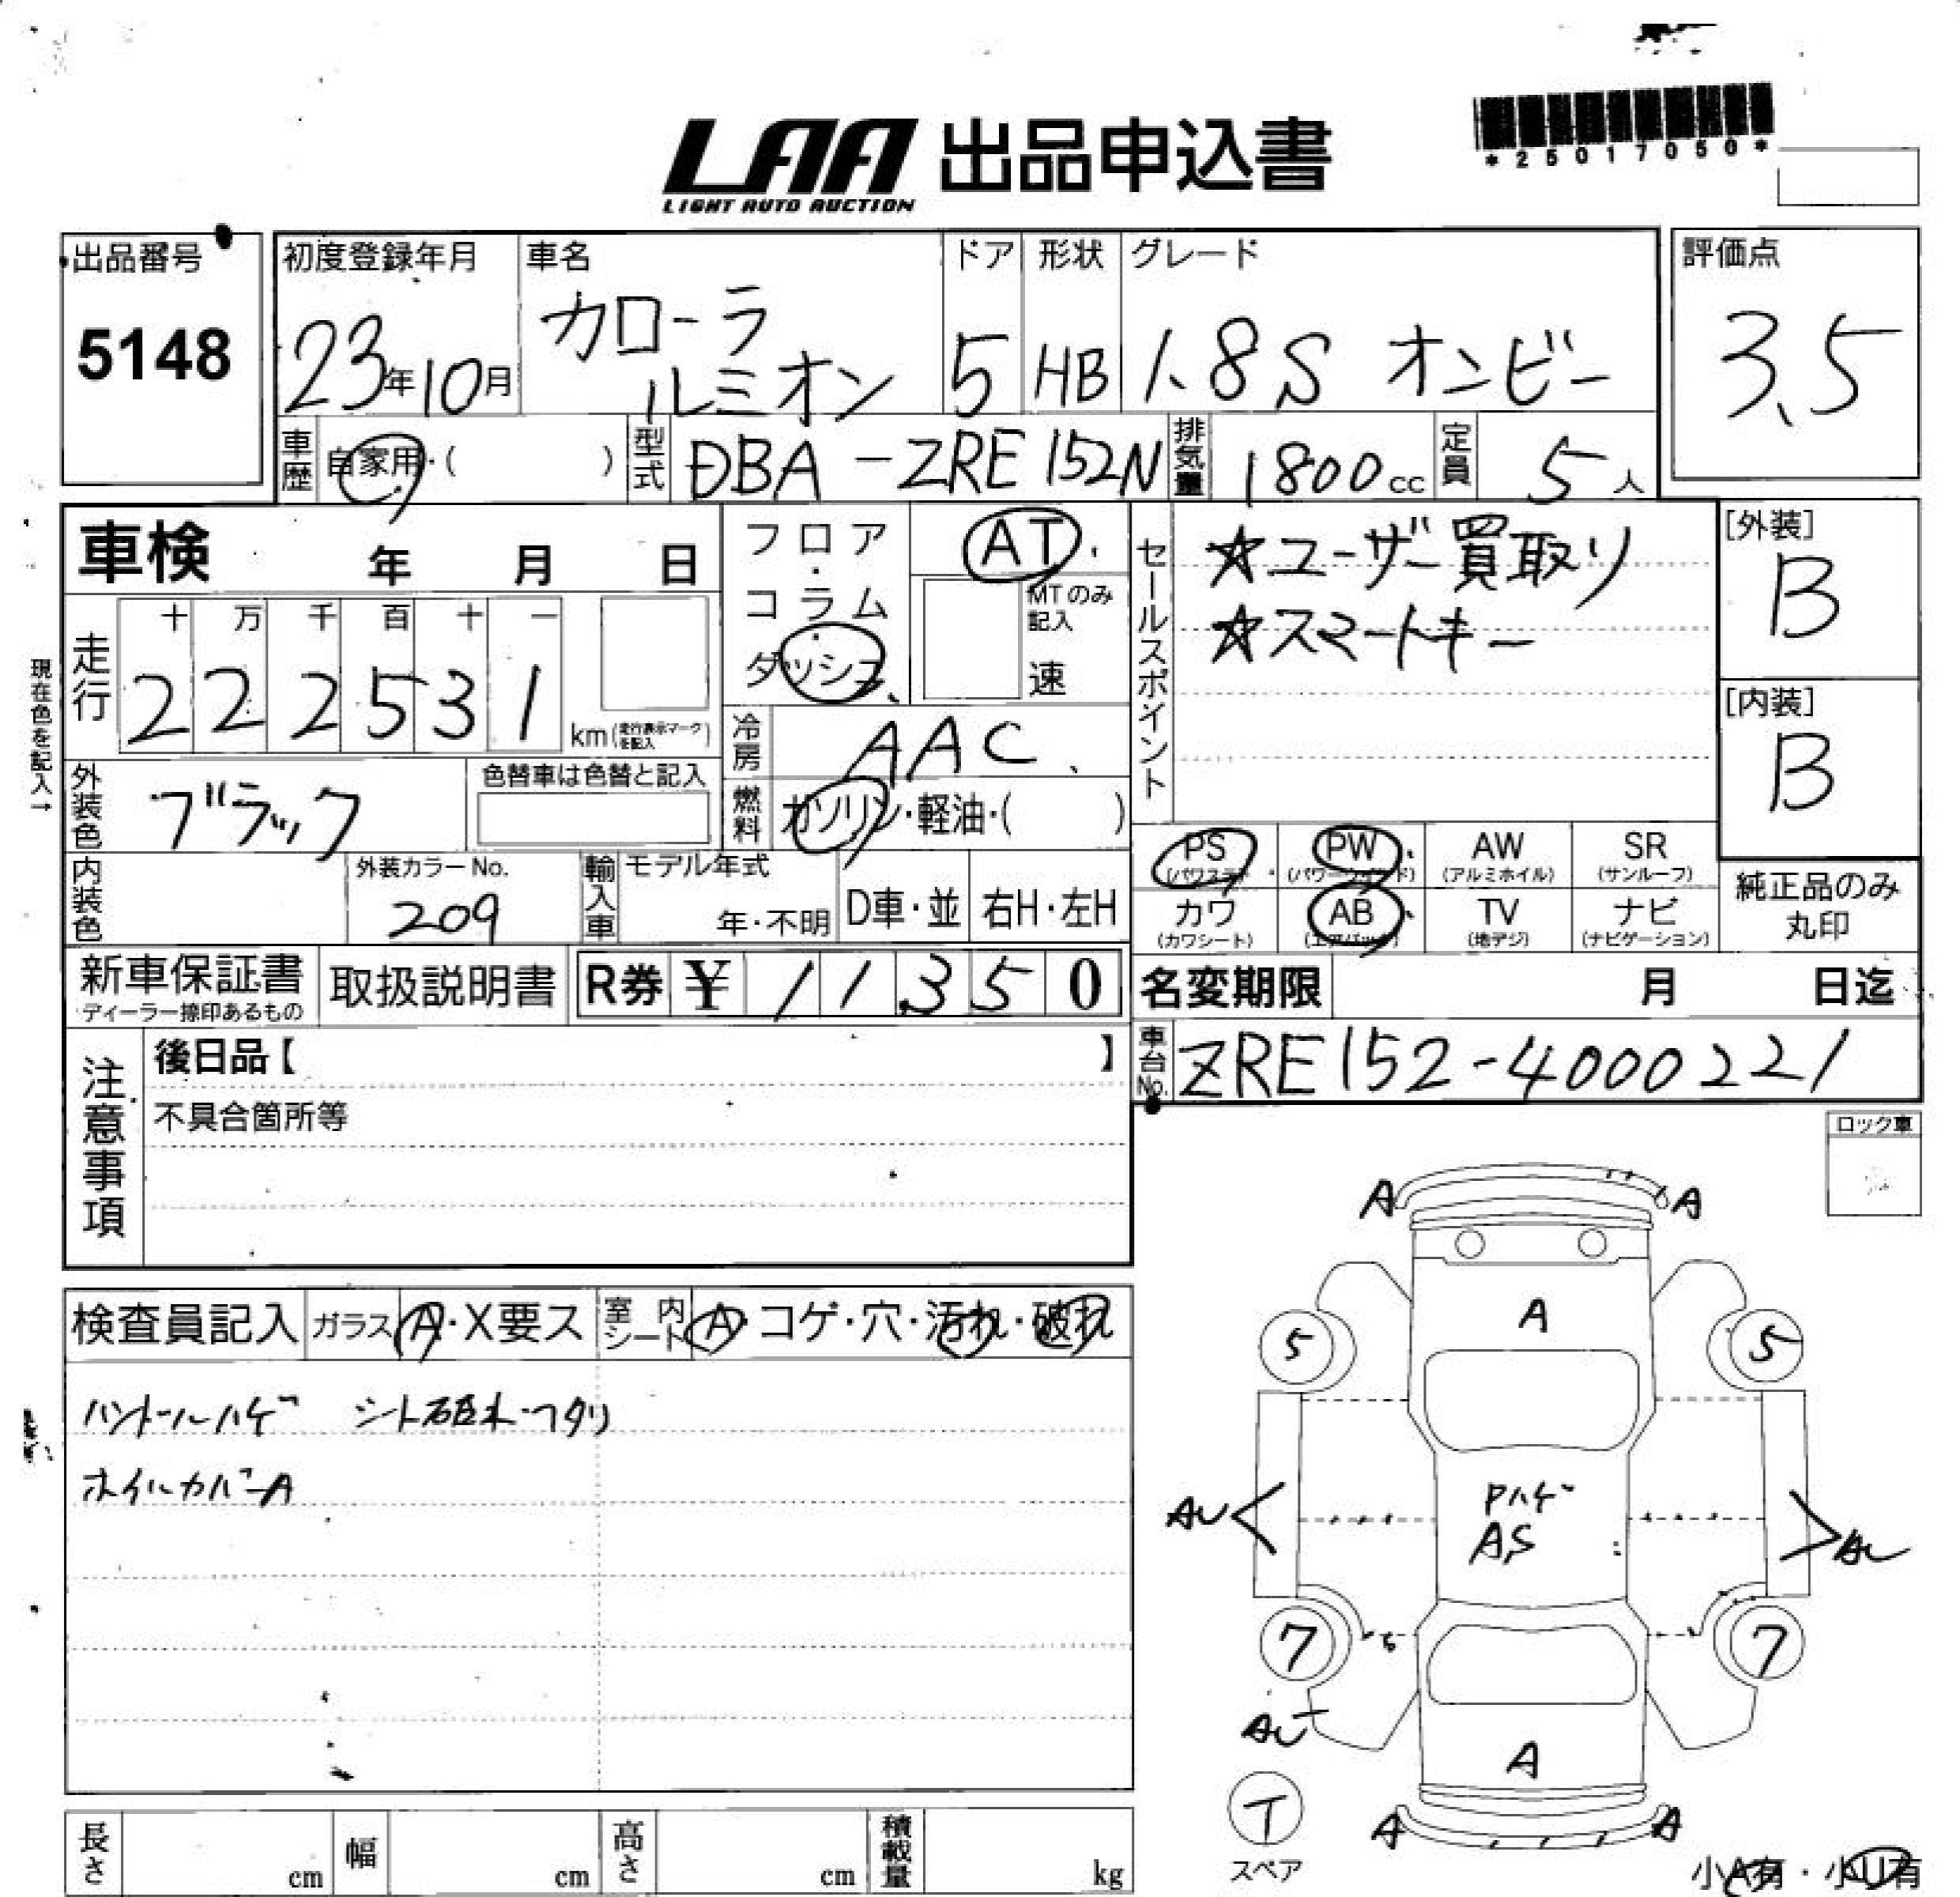 *25017050*
LAA 出品申込書
LIGHT AUTO AUCTION
出品番号
5148
初度登録年月
23年10月
車名
カローラ
ルミオン
ドア
5
形状
HB
グレード
1.8S オンビー
評価点
3.5
車歴
自家用・( )
型式
DBA-ZRE152N
排気量
1800cc
定員
5人
車検 年 月 日
フロア・コラム・ダッシュ
AT
MTのみ記入
速
セールスポイント
☆ユーザー買取り
☆スマートキー
[外装]
B
[内装]
B
現在色を記入→
走行
十 万 千 百 十 一
2 2 2 5 3 1
km(走行表示マークを記入)
冷房
AAC
外装色
ブラック
色替車は色替と記入
燃料
ガソリン・軽油・( )
内装色
外装カラーNo.
209
輸入車
モデル年式
年・不明
D車・並
右H・左H
PS (パワステ)
PW (パワーウインド)
AW (アルミホイル)
SR (サンルーフ)
カワ (カワシート)
AB (エアバック)
TV (地デジ)
ナビ (ナビゲーション)
純正品のみ
丸印
新車保証書
ディーラー捺印あるもの
取扱説明書
R券 ¥ 11,350
名変期限 月 日迄
車台No.
ZRE152-4000221
注意事項
後日品【 】
不具合箇所等
ロック車
検査員記入
ガラス
A・X要ス
室内シート
A・コゲ・穴・汚れ・破れ
ハンドルハゲ シート破れ・フタリ
ホイルカバーA
A A
A
5 5
Pハゲ
AS
AU AU
7 7
AU
A
T
スペア
A A
小A有・小U有
長さ cm
幅 cm
高さ cm
積載量 kg